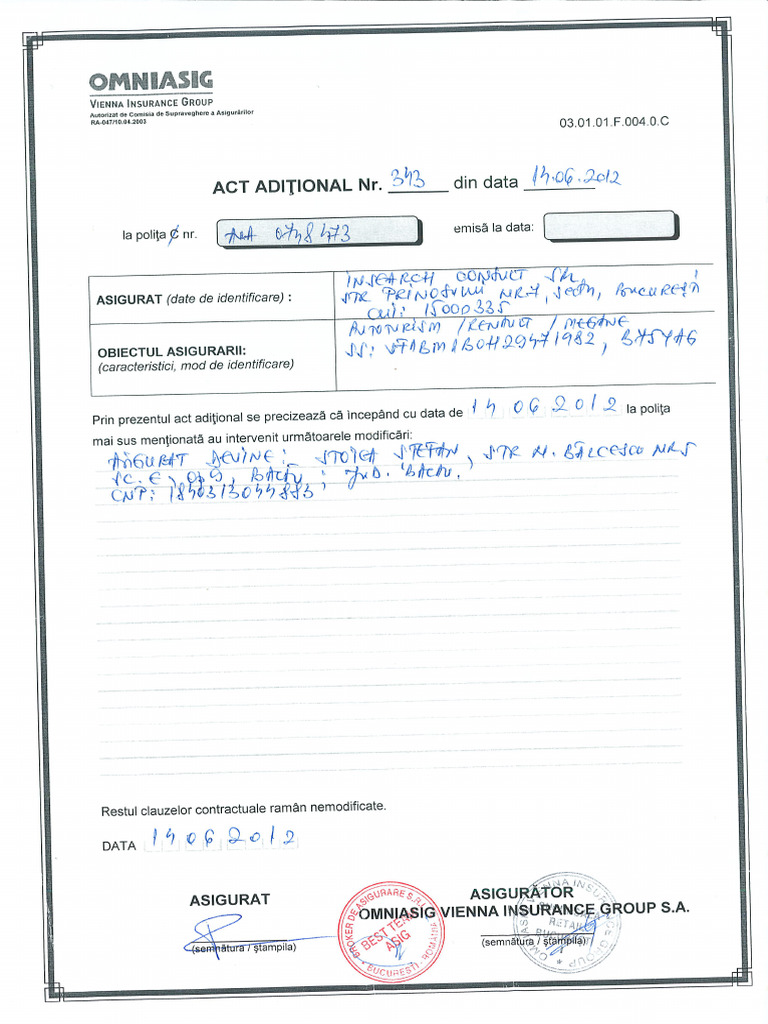 OMNIASIG
VIENNA INSURANCE GROUP
Autorizat de Comisia de Supraveghere a Asigurărilor
RA-047/10.04.2003
03.01.01.F.004.0.C
ACT ADIŢIONAL Nr. 343 din data 14.06.2012
la poliţa C nr. 0748473 emisă la data:
ASIGURAT (date de identificare) :
INSEARCH CONSULT SRL
STR PRINOSULUI NR.7, BUCUREŞTI
CUI: 15000335
OBIECTUL ASIGURARII:
(caracteristici, mod de identificare)
AUTOTURISM / RENAULT / MEGANE
SS:
Prin prezentul act adiţional se precizează că începând cu data de 14 06 2012 la poliţa
mai sus menţionată au intervenit următoarele modificări:
ASIGURAT DEVINE: STOICA STEFAN, STR N. BĂLCESCU NR 5
SC. E, BACĂU, JUD. BACĂU.
CNP:
Restul clauzelor contractuale ramân nemodificate.
DATA 14 06 2012
ASIGURAT
(semnătura / ştampila)
ASIGURĂTOR
OMNIASIG VIENNA INSURANCE GROUP S.A.
(semnătura / ştampila)
BROKER DE ASIGURARE S.R.L.
BEST TEAM
ASIG
BUCURESTI - ROMANIA
VIENNA INSURANCE GROUP
RETAIL